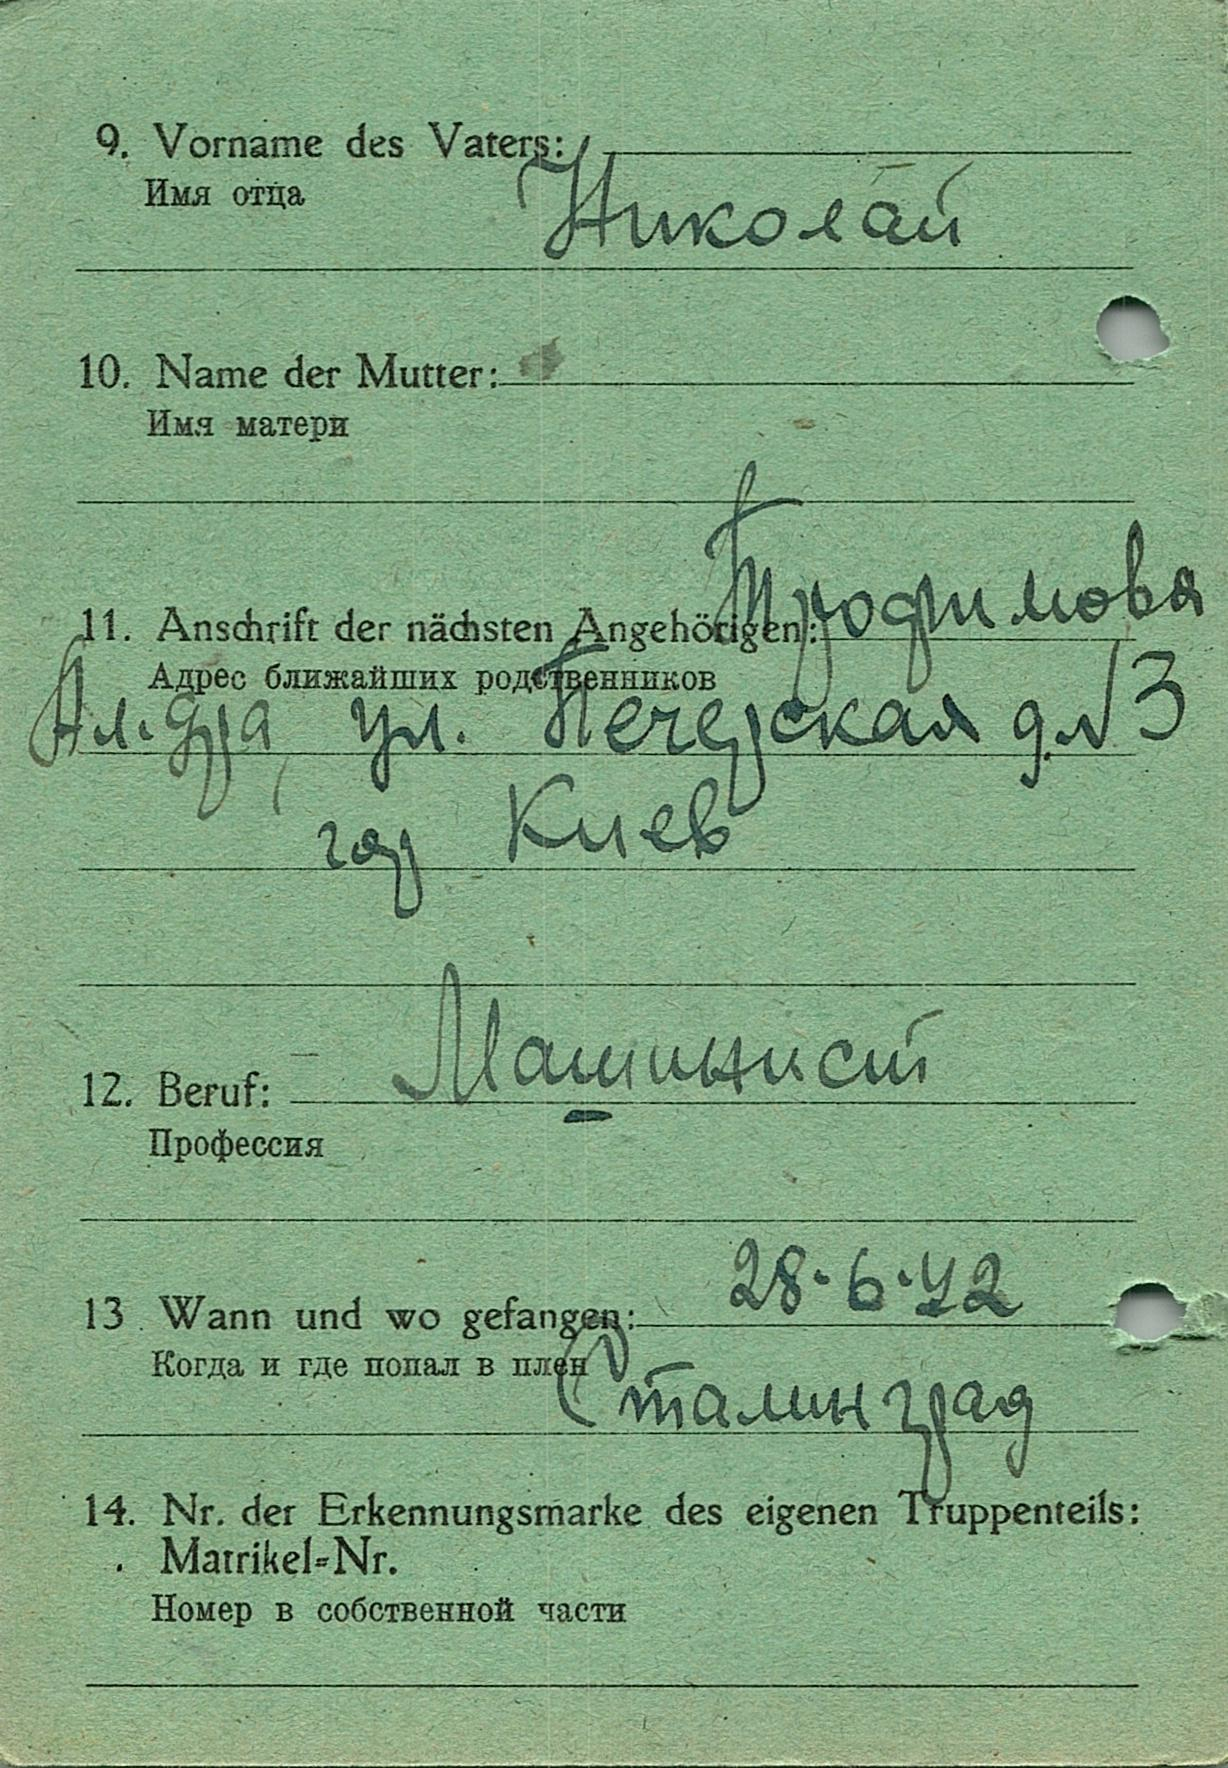 9. Vorname des Vaters:
Имя отца
Николай
10. Name der Mutter:
Имя матери
Трофимова
11. Anschrift der nächsten Angehörigen:
Адрес ближайших родственников
ул. Печерская д. N 3
гор Киев
Машинист
12. Beruf:
Профессия
28.6.42
13. Wann und wo gefangen:
Когда и где попал в плен
Сталинград
14. Nr. der Erkennungsmarke des eigenen Truppenteils:
Matrikel-Nr.
Номер в собственной части